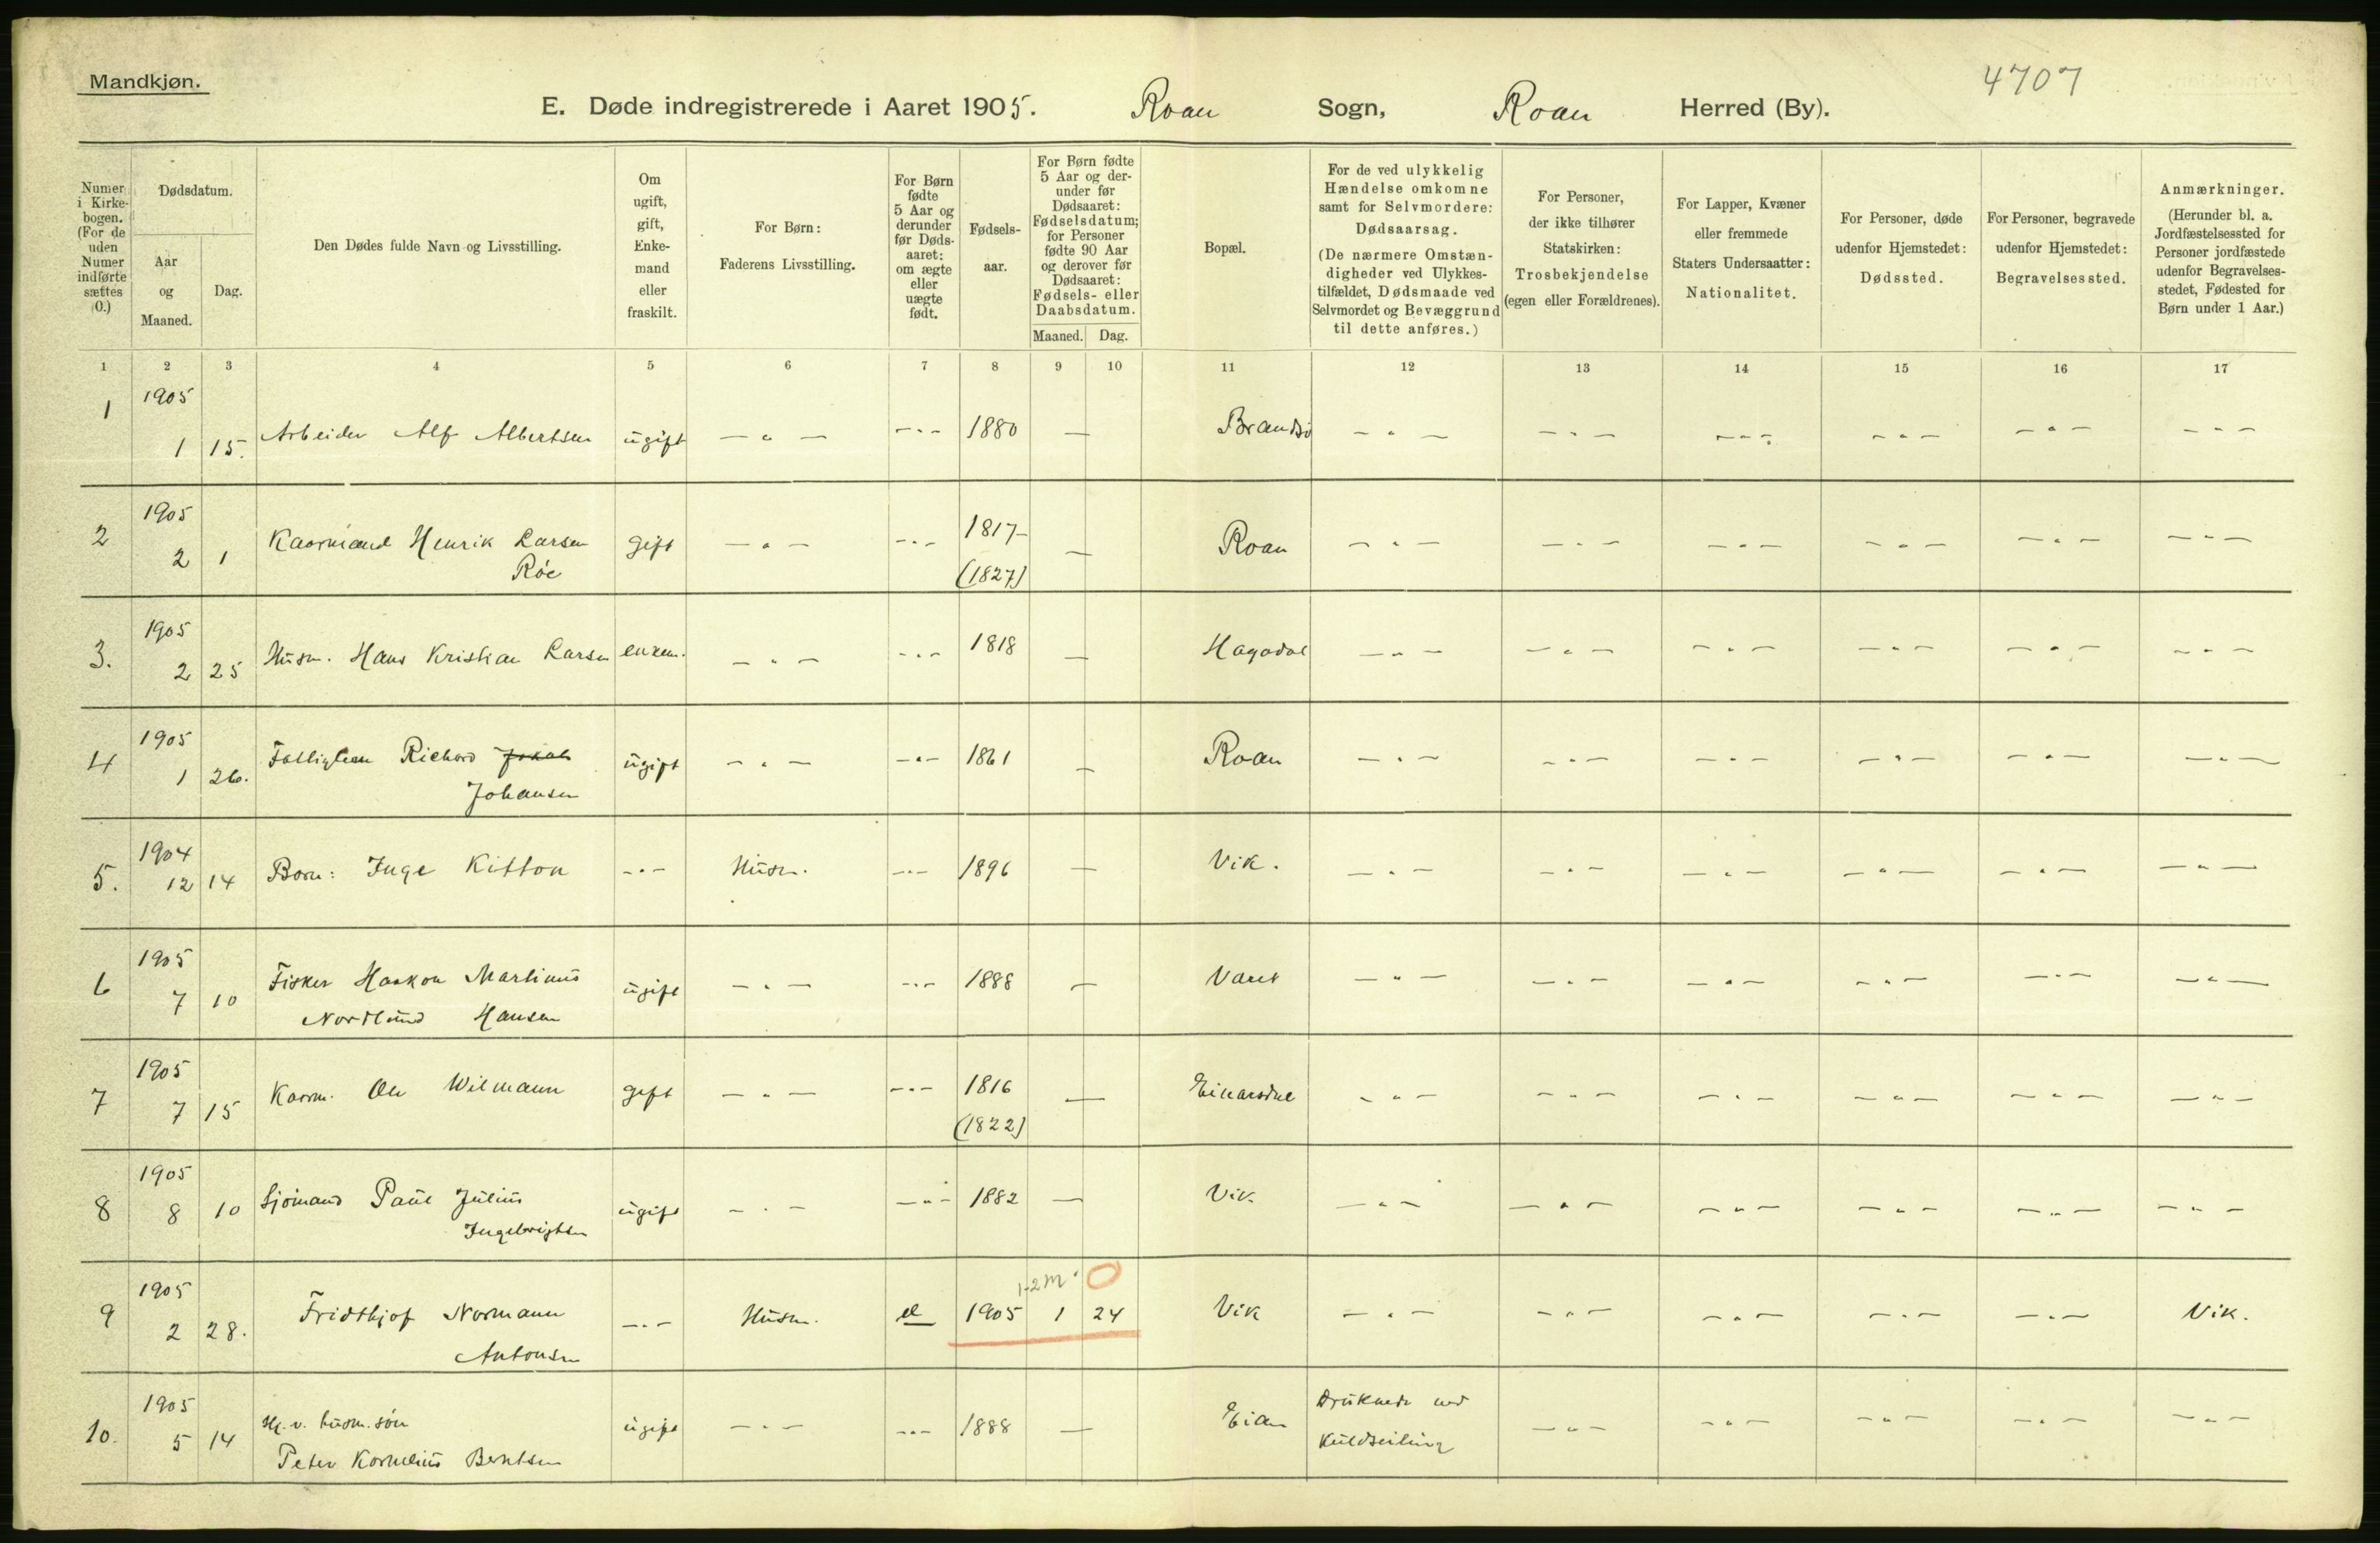 Mandkjøn.
4707
E. Døde indregistrerede i Aaret 1905. Roan Sogn, Roan Herred (By).
Numer i Kirkebogen. (For de uden Numer indførte sættes 0.)
Dødsdatum.
Aar og Maaned.
Dag.
Den Dødes fulde Navn og Livsstilling.
Om ugift, gift, Enkemand eller fraskilt.
For Børn: Faderens Livsstilling.
For Børn fødte 5 Aar og derunder før Dødsaaret: om ægte eller uægte født.
Fødselsaar.
For Børn fødte 5 Aar og derunder før Dødsaaret: Fødselsdatum; for Personer fødte 90 Aar og derover før Dødsaaret: Fødsels- eller Daabsdatum.
Maaned. Dag.
Bopæl.
For de ved ulykkelig Hændelse omkomne samt for Selvmordere: Dødsaarsag. (De nærmere Omstændigheder ved Ulykkestilfældet, Dødsmaade ved Selvmordet og Bevæggrund til dette anføres.)
For Personer, der ikke tilhører Statskirken: Trosbekjendelse (egen eller Forældrenes).
For Lapper, Kvæner eller fremmede Staters Undersaatter: Nationalitet.
For Personer, døde udenfor Hjemstedet: Dødssted.
For Personer, begravede udenfor Hjemstedet: Begravelsessted.
Anmærkninger. (Herunder bl. a. Jordfæstelsessted for Personer jordfæstede udenfor Begravelsesstedet, Fødested for Børn under 1 Aar.)
1 2 3 4 5 6 7 8 9 10 11 12 13 14 15 16 17
1 1905 1 15. Arbeider Alf Albertsen ugift 1880 Brandsø
2 1905 2 1 Kaarmand Henrik Larsen Röe gift 1817 (1827) Roan
3. 1905 2 25 Husm. Hans Kristian Larsen enkem. 1818 Hagadal
4 1905 1 26. Richard Johansen ugift 1861 Roan
5. 1904 12 14 Barn: Inge Kitton Husm. 1896 Vik.
6 1905 7 10 Fisker Haakon Martinus Nordlund Hansen ugift 1888 Varet
7 1905 7 15 Kaarm. Ole Wilmann gift 1816 (1822) Einarsdal
8 1905 8 10 Sjömand Paul Julius Ingebrigtsen ugift 1882 Vik
1-2 m. 0
9 1905 2 28. Fridthjof Normann Antonsen Husm. æ 1905 1 24 Vik Vik.
10. 1905 5 14 Hj. v. husm. sön Peter Kornelius Berntsen ugift 1888 Eian Druknede ved Kuldseiling